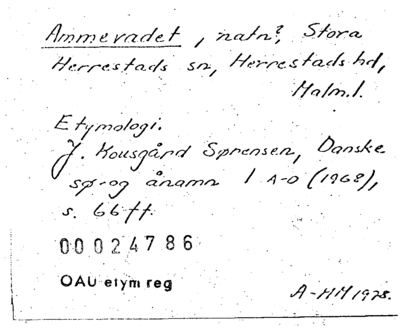 Ammevadet, natn?, Stora
Herrestads sn, Herrestads hd,
Malm.l.
Etymologi.
J. Kousgård Sørensen, Danske
sø- og ånamn 1 A-D (1968),
s. 66 ff.
00024786
OAU etym reg
A-HM 1975.